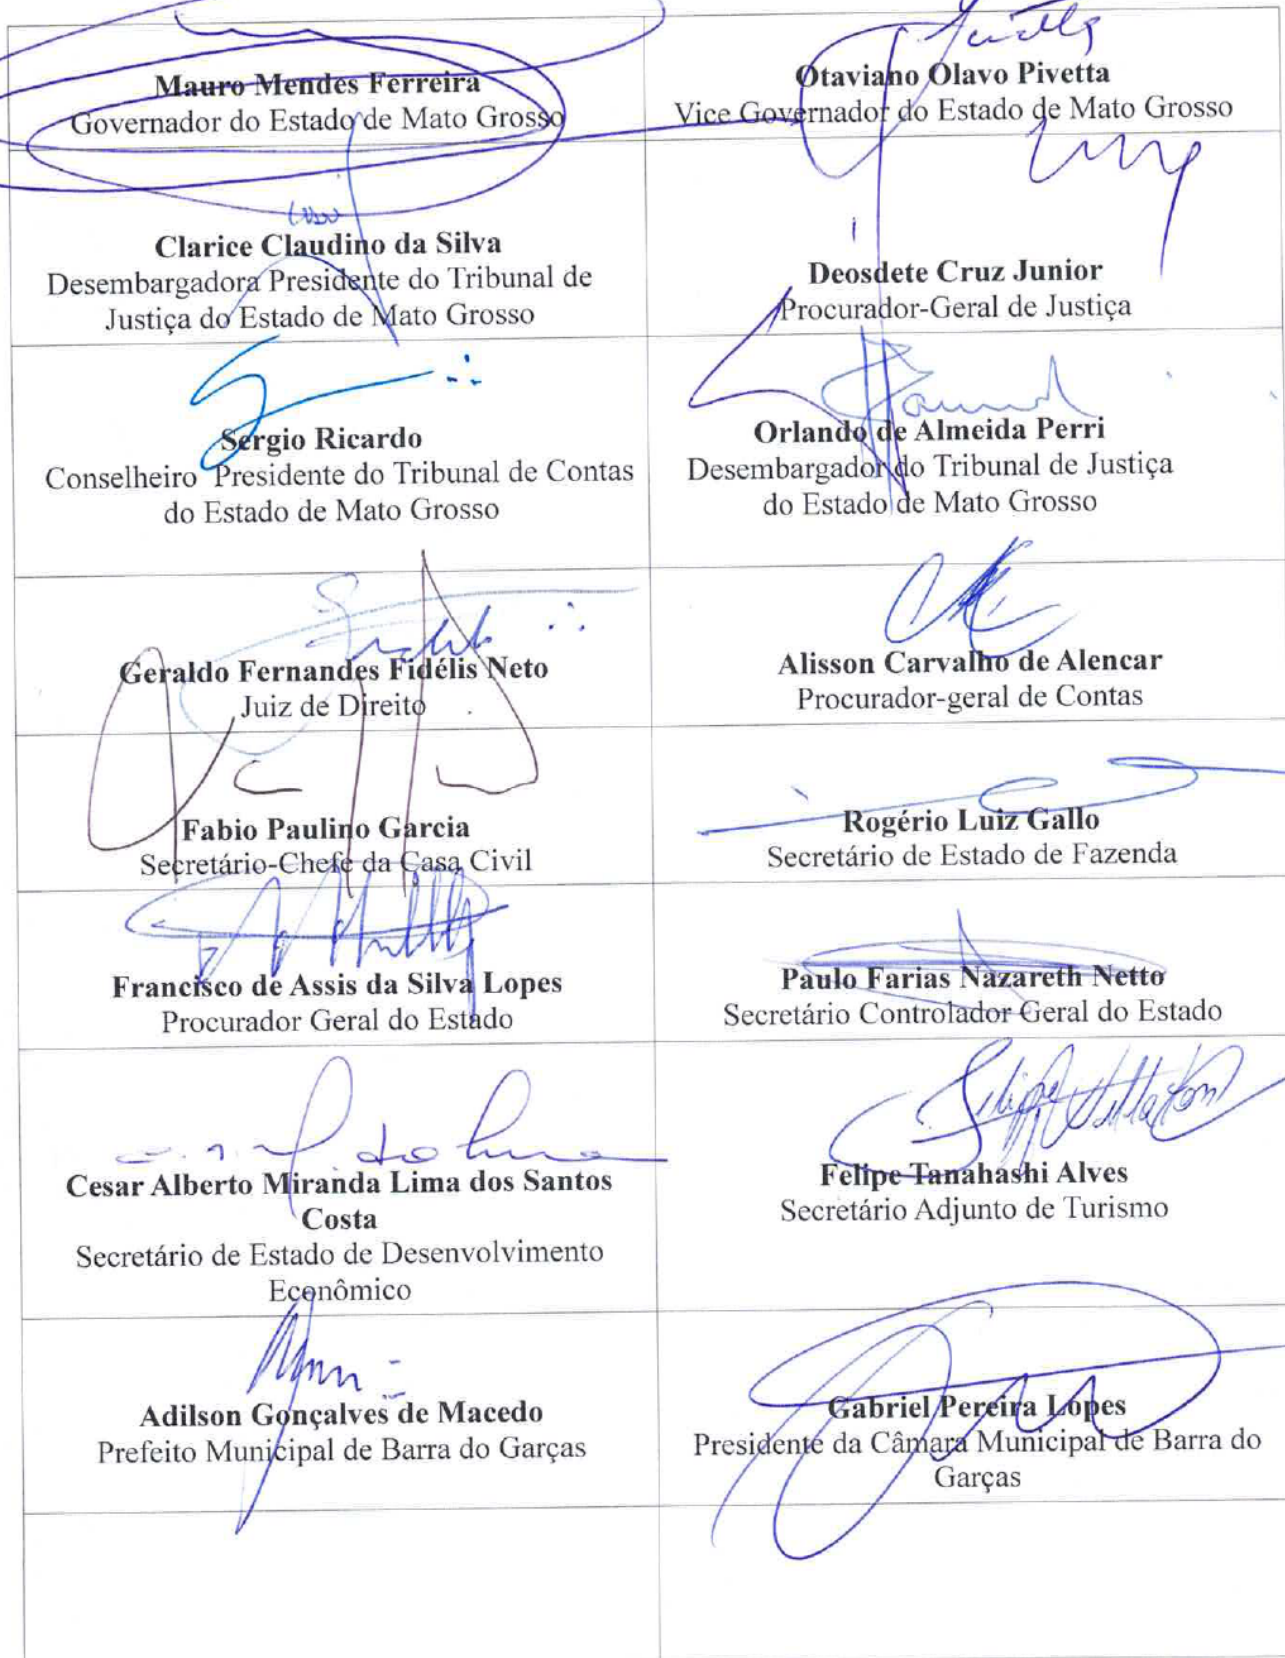 Mauro Mendes Ferreira
Governador do Estado de Mato Grosso
Otaviano Olavo Pivetta
Vice Governador do Estado de Mato Grosso
Clarice Claudino da Silva
Desembargadora Presidente do Tribunal de
Justiça do Estado de Mato Grosso
Deosdete Cruz Junior
Procurador-Geral de Justiça
Sergio Ricardo
Conselheiro Presidente do Tribunal de Contas
do Estado de Mato Grosso
Orlando de Almeida Perri
Desembargador do Tribunal de Justiça
do Estado de Mato Grosso
Geraldo Fernandes Fidélis Neto
Juiz de Direito
Alisson Carvalho de Alencar
Procurador-geral de Contas
Fabio Paulino Garcia
Secretário-Chefe da Casa Civil
Rogério Luiz Gallo
Secretário de Estado de Fazenda
Francisco de Assis da Silva Lopes
Procurador Geral do Estado
Paulo Farias Nazareth Netto
Secretário Controlador Geral do Estado
Cesar Alberto Miranda Lima dos Santos
Costa
Secretário de Estado de Desenvolvimento
Econômico
Felipe Tanahashi Alves
Secretário Adjunto de Turismo
Adilson Gonçalves de Macedo
Prefeito Municipal de Barra do Garças
Gabriel Pereira Lopes
Presidente da Câmara Municipal de Barra do
Garças